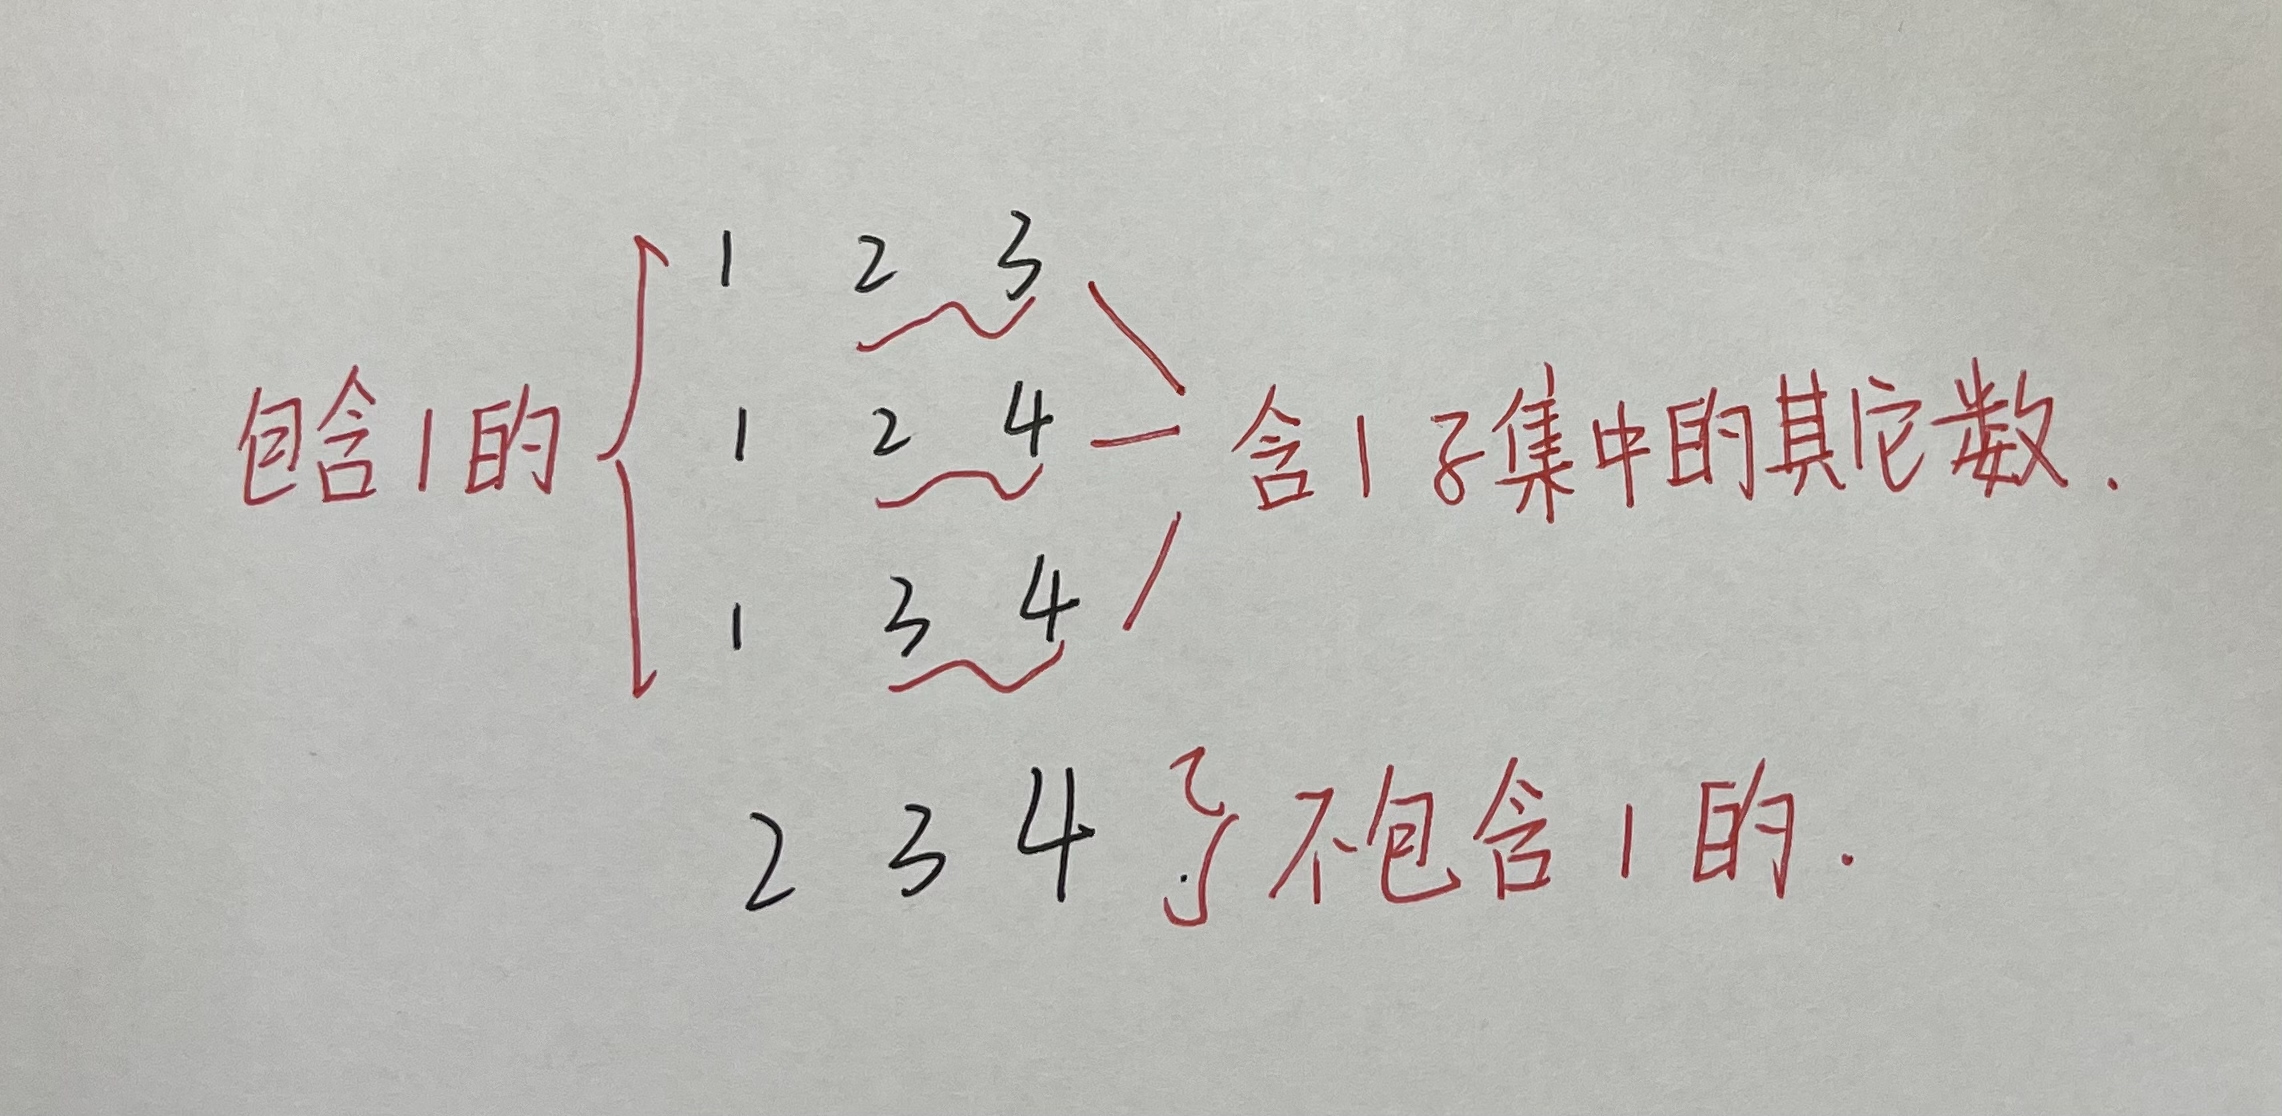 1 2 3
包含1的 1 2 4 含1子集中的其它数.
1 3 4
2 3 4 不包含1的.